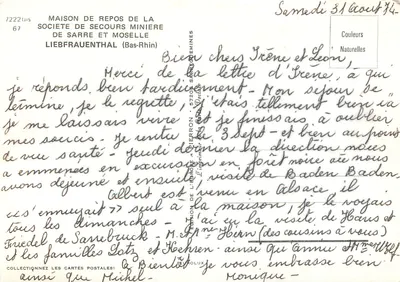 Samedi 31 Aout 74.
7222bis
67
MAISON DE REPOS DE LA
SOCIETE DE SECOURS MINIERE
DE SARRE ET MOSELLE
LIEBFRAUENTHAL (Bas-Rhin)
Couleurs
Naturelles
Bien chers Irène et Léon,
Merci de la lettre d'Irène, à qui
je réponds bien tardivement - Mon séjour se
termine, je le regrette, j'étais tellement bien ici
je me laissais vivre et je finissais à oublier
mes soucis. Je rentre le 3 Sept - et bien au point
de vue santé - Jeudi dernier la direction nous
a emmenées en excursion en forêt noire où nous
avons déjeuné et ensuite visite de Baden Baden.
Albert est venu en Alsace, il
"s'ennuyait" seul à la maison, je le voyais
tous les dimanches - J'ai eu la visite de Hans et
Friedel de Sarrebruck - M. et Mme Hirn (des cousins à vous)
et les familles Lotz et ainsi que
A Bientôt je vous embrasse bien
ainsi que Michel - Monique -
COLLECTIONNEZ LES CARTES POSTALES